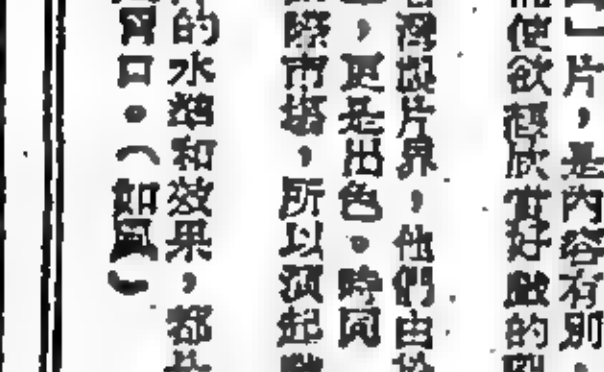 」片，是內容有別，
使欲極欣賞好戲的
製片界，他們由於
，更是出色。時間
際市場，所以演起
的水準和效果，都
胃口。（如鳳）